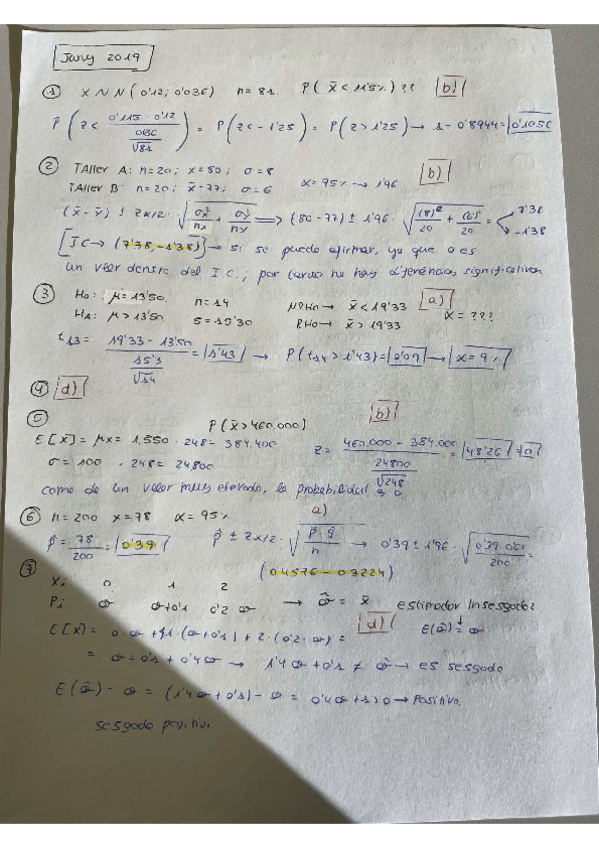 Juny 2019
① X ~ N (0'12; 0'036) n = 81. P( x̄ < 11'5%)?? b)
P (Z < 0'115 - 0'12 / 0'036 / √81) = P(Z < -1'25) = P(Z > 1'25) → 1 - 0'8944 = 0'1056
② TAller A: n=20; x̄=80; σ=8 b)
TAller B: n=20; x̄=77; σ=6 α=95% → 1'96
(x̄ - ȳ) ± Zα/2 · √(σx²/nx + σy²/ny) ⇒ (80-77) ± 1'96 · √((8)²/20 + (6)²/20) = 7'38 -1'38
[IC → (7'38, -1'38)] → si se puede afirmar, ya que 0 es
un valor dentro del I.C.; por tanto no hay diferencias significativas
③ H0: μ = 13'50. n = 14 NRH0 → x̄ < 19'33 a)
HA: μ > 13'50 S = 15'30 RH0 → x̄ > 19'33 α = ???
t13 = 19'33 - 13'50 / 15'3 / √14 = 1'43 → P(t14 > 1'43) = 0'09 → α = 9%
④ d)
⑤ P(x̄ > 460.000) b)
E[X] = μx = 1.550 · 248 = 384.400 Z = 460.000 - 384.000 / 24800 / √248 = 48'26 = 0
σ = 100 · 248 = 24800
como da un valor muy elevado, la probabilidad 0
⑥ n = 200 x = 78 α = 95% a)
p̂ = 78/200 = 0'39 p̂ ± Zα/2 · √(p̂ · q̂ / n) → 0'39 ± 1'96 · √(0'39 · 0'61 / 200) =
(0'4576 - 0'3224)
⑦
Xi 0 1 2
Pi θ θ+0'1 0'2·θ → θ̂ = x̄ estimador insesgado?
E[X] = 0·θ + 1·(θ+0'1) + 2·(0'2·θ) = d) E(θ̂) = θ
= θ + 0'1 + 0'4θ → 1'4θ + 0'1 ≠ θ → es sesgado
E(θ̂) - θ = (1'4θ + 0'1) - θ = 0'4θ + 1 > 0 → Positivo.
sesgado positivo.